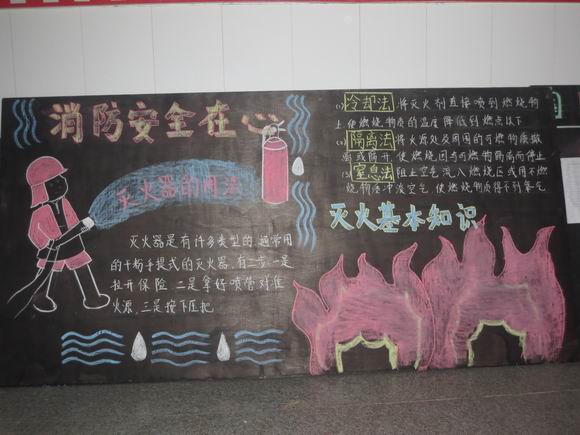 消防安全在心
灭火器的用法
灭火器是有许多类型的,通常用
的干粉手提式的灭火器,有二步:一是
拉开保险 二是拿好喷管对准
火源,三是按下压把
(1)冷却法:将灭火剂直接喷到燃烧物
上使燃烧物质的温度降低到燃点以下
(2)隔离法 将火源处及周围的可燃物质撤
离或隔开,使燃烧因与可燃物隔离而停止
(3)窒息法 阻止空气流入燃烧区或用不燃
烧物质冲淡空气,使燃烧物质得不到氧气
灭火基本知识